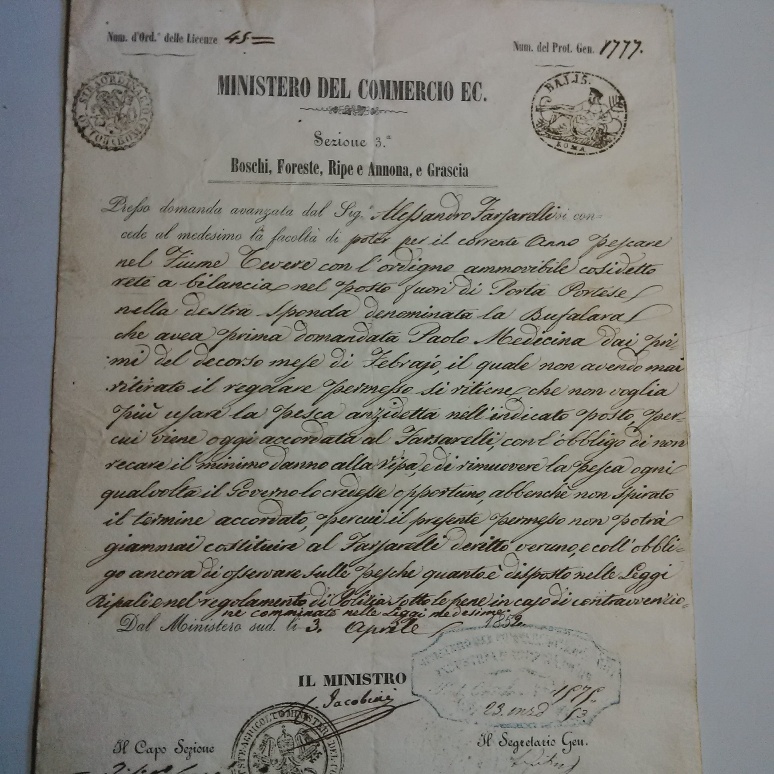 Num. d'Ord.e delle Licenze 45=
Num. del Prot. Gen. 1777.
MINISTERO DEL COMMERCIO EC.
BAJ 15.
ROMA
Sezione 3.a
Boschi, Foreste, Ripe e Annona, e Grascia
Presso domanda avanzata dal Sig.r Alessandro Farsarelli si con-
cede al medesimo la facoltà di poter per il corrente Anno pescare
nel Fiume Tevere con l'ordigno ammovibile cosidetto
rete a bilancia nel posto fuori di Porta Portese
nella destra sponda denominata la Bufalara
che avea prima domandata Paolo Medicina dai pri
mi del decorso mese di Febrajo, il quale non avendo mai
ritirato il regolare permesso si ritiene che non voglia
più usare la pesca anzidetta nell'indicato posto, per
cui viene oggi accordata al Farsarelli, con l'obbligo di non
recare il minimo danno alla ripa, e di rimuovere la pesca ogni
qualvolta il Governo lo credesse opportuno, abbenchè non spirato
il termine accordato, percui il presente permesso non potrà
giammai costituire al Farsarelli deritto veruno, e coll'obbli-
go ancora di osservare sulle pesche quanto è disposto nelle Leggi
Ripali e nel regolamento di Polizia sotto le pene in caso di contravenzio-
ne comminate nelle Leggi medesime
Dal Ministero sud. li 3. Aprile 1852
IL MINISTRO
Jacobini
23
Il Capo Sezione
Il Segretario Gen.